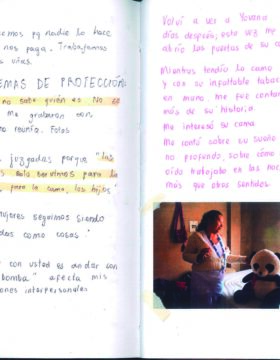 cemos pq nadie lo hace
nos paga. Trabajamos
s días.
EMAS DE PROTECCIÓN:
no sabe quién es. No se
me grabaron con
mo reunía. Fotos
juzgadas porque "las
solo servimos para la
para la cama, los hijos"
mujeres seguimos siendo
das como cosas."
r con usted es andar con
bomba" afecta mis
ones interpersonales
Volví a ver a Yovana
días después, esta vez me
abrió las puertas de su ca
Mientras tendía la cama
y con su infaltable tabac
en mano, me fue contan
más de su historia.
Me interesó su cama
Me contó sobre su sueño
no profundo, sobre cómo
oído trabajaba en las noc
más que otros sentidos